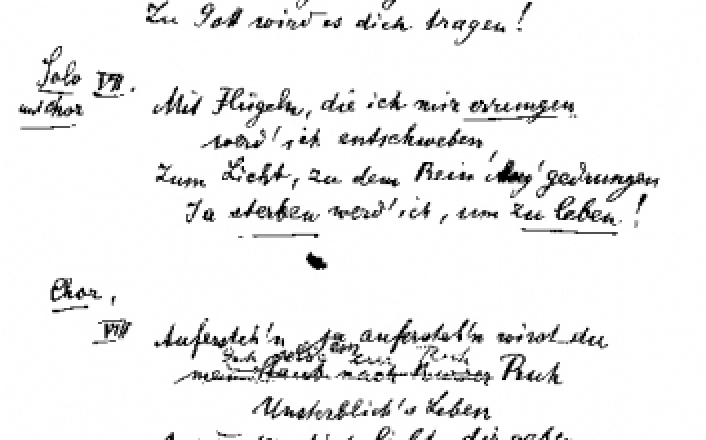 Zu Gott wird es dich tragen!
Solo VII.
mit Chor
Mit Flügeln, die ich mir errungen
werd' ich entschweben,
Zum Licht, zu dem kein Aug' gedrungen
Ja sterben werd' ich, um zu leben!
Chor,
VIII
Aufersteh'n ja aufersteh'n wirst du
mein Staub nach kurzer Ruh
Unsterblich's Leben